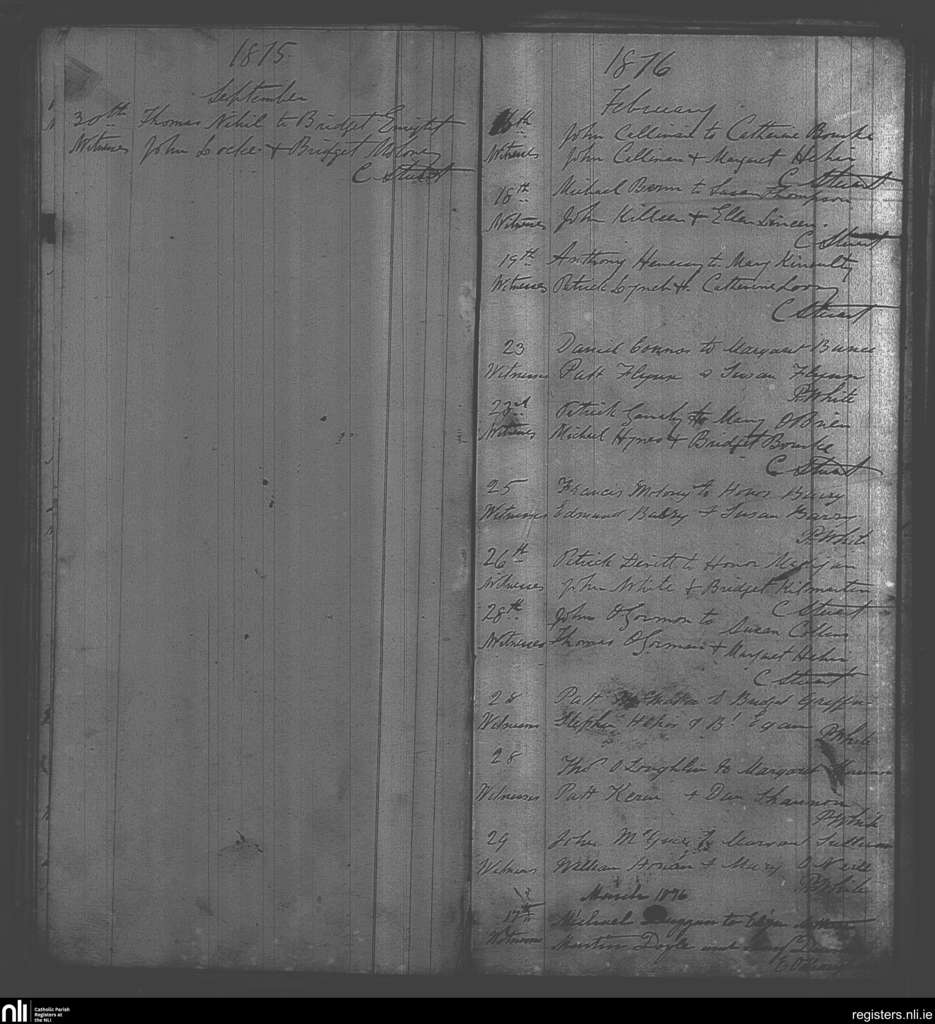 1875
September
30th Thomas Nihil to Bridget Enright
Witnesses John Locke + Bridget Molony
C Stuart
1876
February
16th John Cullinan to Catherine Bourke
Witnesses John Cullinan + Margaret Hehir
C Stuart
18th Michael to Susan Thompson
Witnesses John Killeen + Ellen
C Stuart
19th Anthony to Mary
Witnesses Patrick Lynch + Catherine
C Stuart
23 Daniel Connor to Margaret
Witnesses Patt Flynn & Susan Flynn
P. White
23rd Patrick to Mary O'Brien
Witnesses Michael Hynes + Bridget Bourke
C Stuart
25 Francis Molony to Honor Barry
Witnesses Edmund Barry + Susan Barry
P. White
26th Patrick to Honor
Witnesses John White + Bridget Kilmartin
C Stuart
28th John O'Gorman to Susan Collins
Witnesses Thomas O'Gorman + Margaret Hehir
C Stuart
28 Patt to Bridget Griffin
Witnesses Stephen Hehir & Bt Egan
P. White
28 Thos O'Loughlin to Margaret
Witnesses Patt + Dan Shannon
P. White
29 John to Margaret Sullivan
Witnesses William + Mary O'Neill
P. White
March 1876
17th Michael to
Witnesses Martin Doyle and
nli
Catholic Parish
Registers at
the NLI
registers.nli.ie